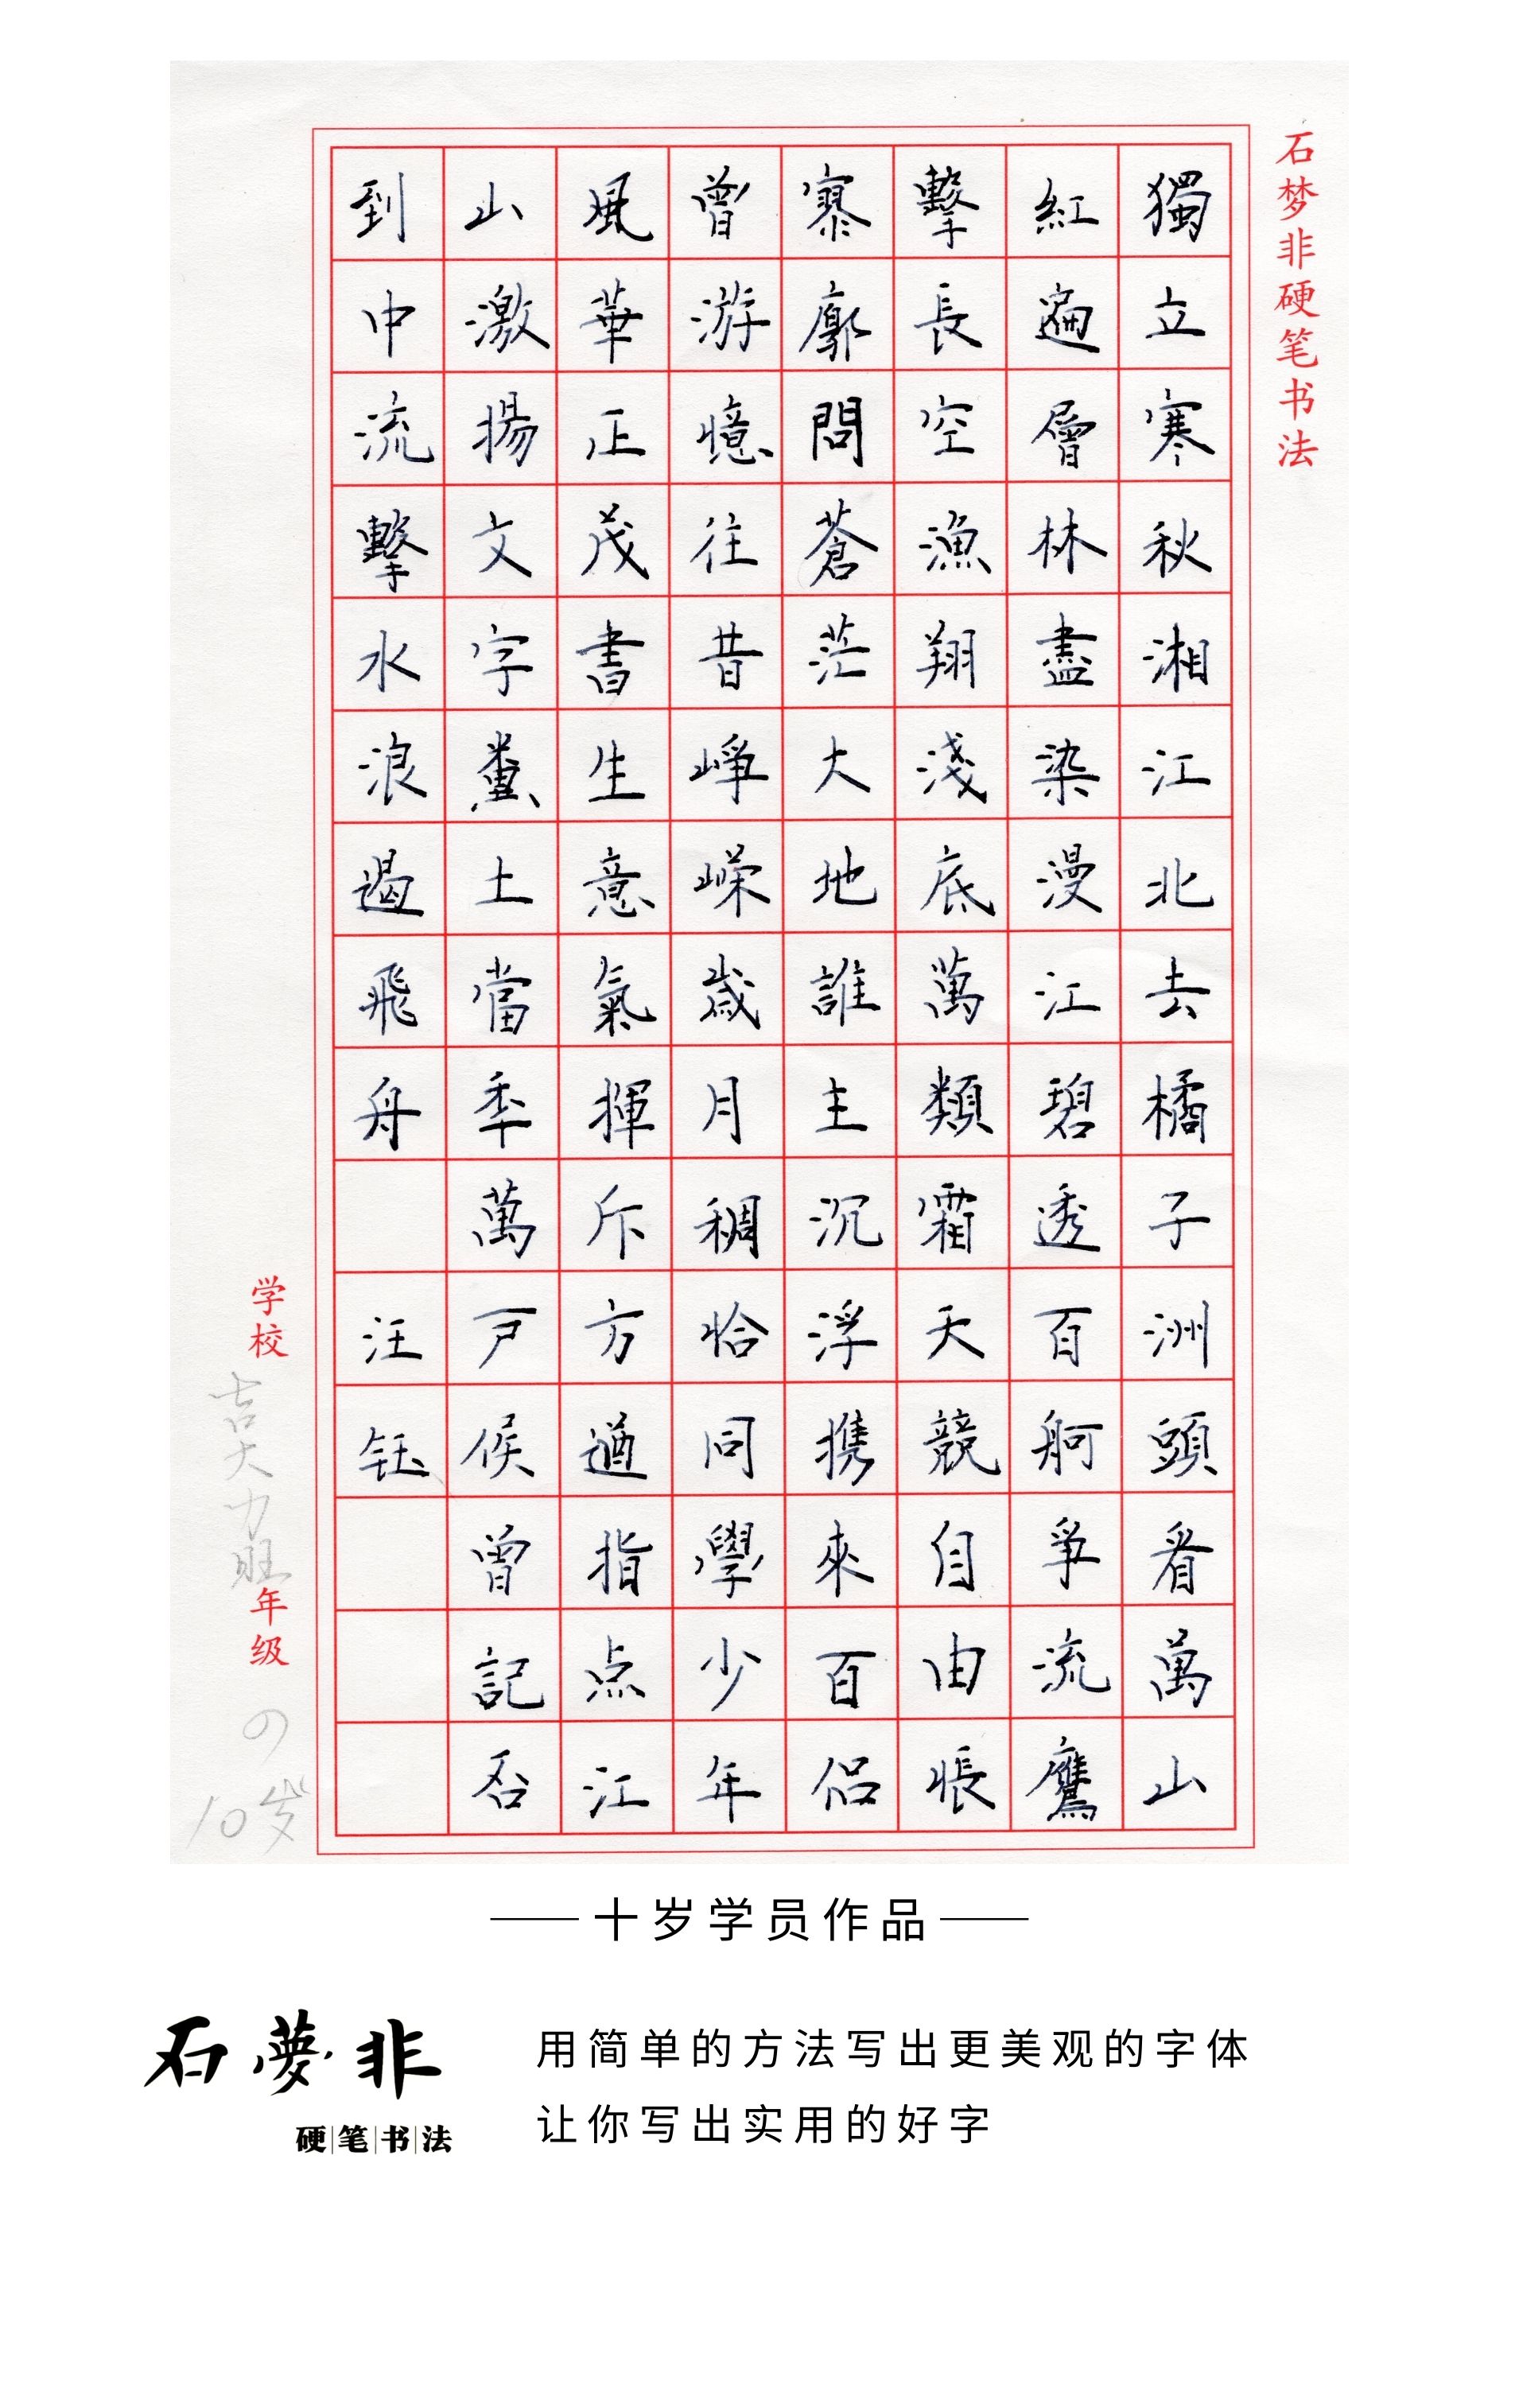 石梦非硬笔书法
獨立寒秋湘江北去橘子洲頭看萬山
紅遍層林盡染漫江碧透百舸爭流鷹
擊長空漁翔淺底萬類霜天競自由悵
寥廓問蒼茫大地誰主沉浮携來百侣
曾游憶往昔崢嶸歲月稠恰同學少年
風華正茂書生意氣揮斥方遒指点江
山激揚文字糞土當年萬戶侯曾記否
到中流擊水浪遏飛舟 汪钰
学校 吉大力旺 年级
10岁
十岁学员作品
石夢非
硬笔书法
用简单的方法写出更美观的字体
让你写出实用的好字